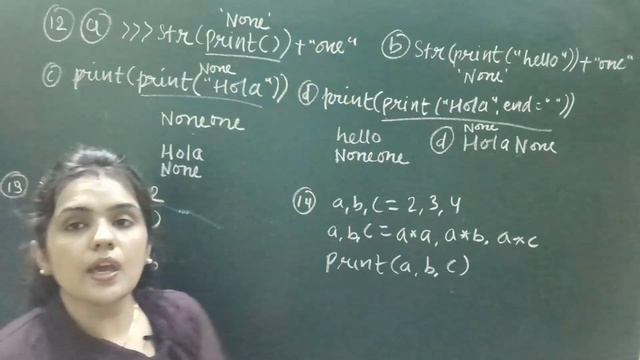 'None'
12 a >>> str(print())+"one"
b str(print("hello"))+"one"
'None'
None
c print(print("Hola"))
d print(print("Hola", end=" "))
None
Noneone
hello
Noneone
d Hola None
Hola
None
13
2
)
14 a, b, c = 2, 3, 4
a, b, c = a*a, a*b, a*c
print(a, b, c)